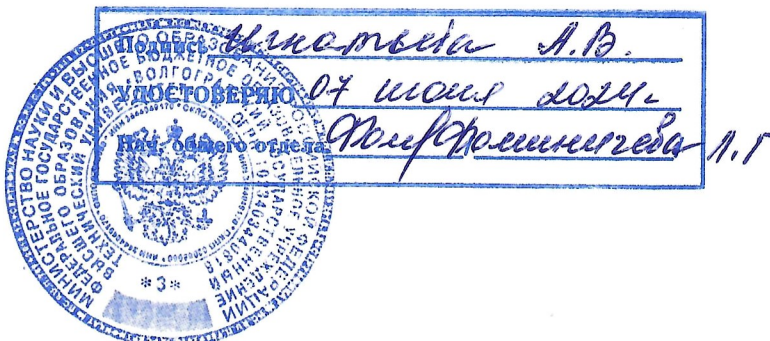 Подпись Игнатьева А.В.
УДОСТОВЕРЯЮ 07 июня 2024г
Нач. общего отдела Фоминичева Л.Г
МИНИСТЕРСТВО НАУКИ И ВЫСШЕГО ОБРАЗОВАНИЯ РОССИЙСКОЙ ФЕДЕРАЦИИ
ФЕДЕРАЛЬНОЕ ГОСУДАРСТВЕННОЕ БЮДЖЕТНОЕ ОБРАЗОВАТЕЛЬНОЕ УЧРЕЖДЕНИЕ
ВЫСШЕГО ОБРАЗОВАНИЯ «ВОЛГОГРАДСКИЙ ГОСУДАРСТВЕННЫЙ
ТЕХНИЧЕСКИЙ УНИВЕРСИТЕТ»
*3*